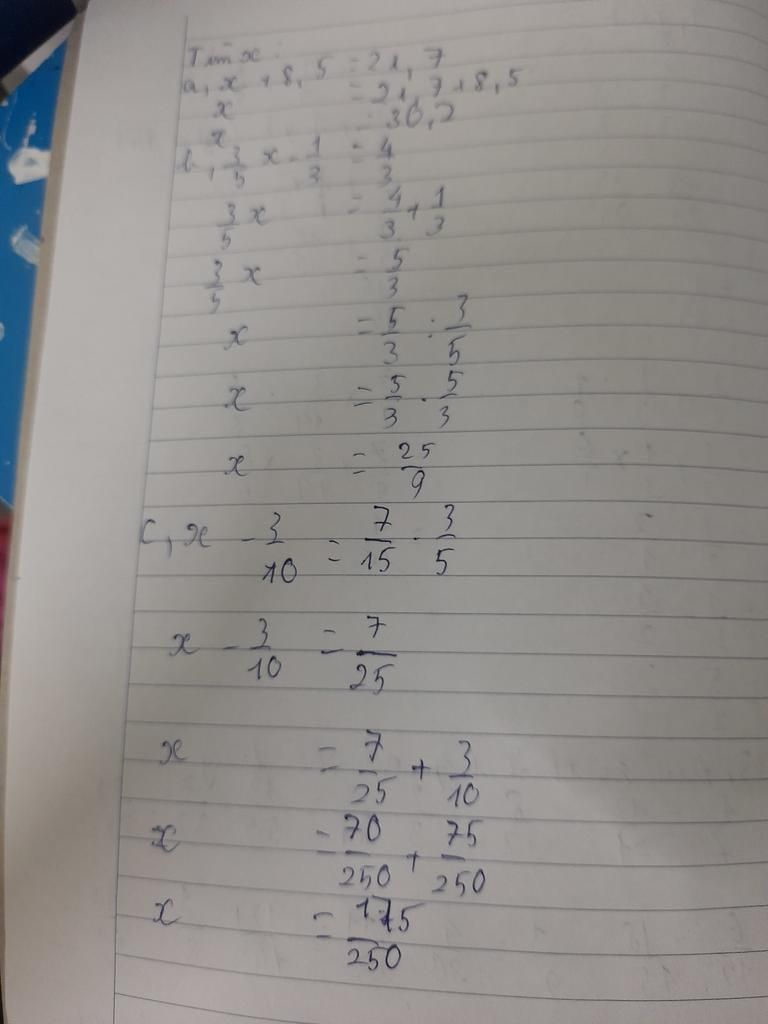 Tìm x:
a, x + 8,5 = 21,7
x = 21,7 + 8,5
x = 30,2
b, 3/5 x - 1/3 = 4/3
3/5 x = 4/3 + 1/3
3/5 x = 5/3
x = 5/3 : 3/5
x = 5/3 . 5/3
x = 25/9
c, x - 3/10 = 7/15 . 3/5
x - 3/10 = 7/25
x = 7/25 + 3/10
x = 70/250 + 75/250
x = 175/250